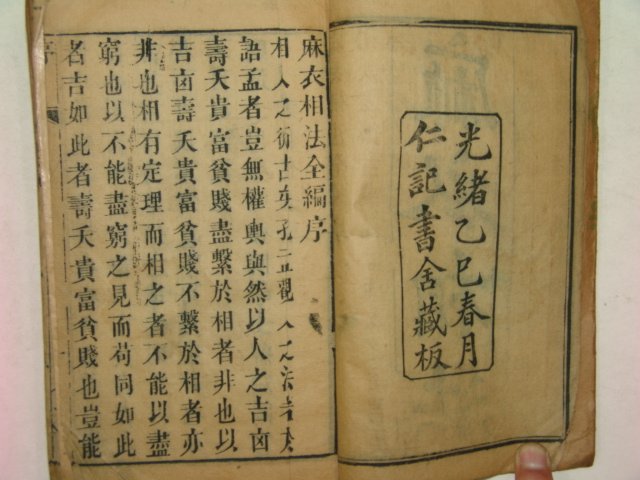 光緒乙巳春月
仁記書舍藏板
麻衣相法全編序
相人之術古矣孔子觀人之法
語孟者豈無權輿與然以人之吉凶
壽夭貴富貧賤盡繫於相者非也以
吉凶壽夭貴富貧賤不繫於相者亦
非也相有定理而相之者不能以盡
窮也以不能盡窮之見而苟同如此
者吉如此者壽夭貴富貧賤也豈能
序